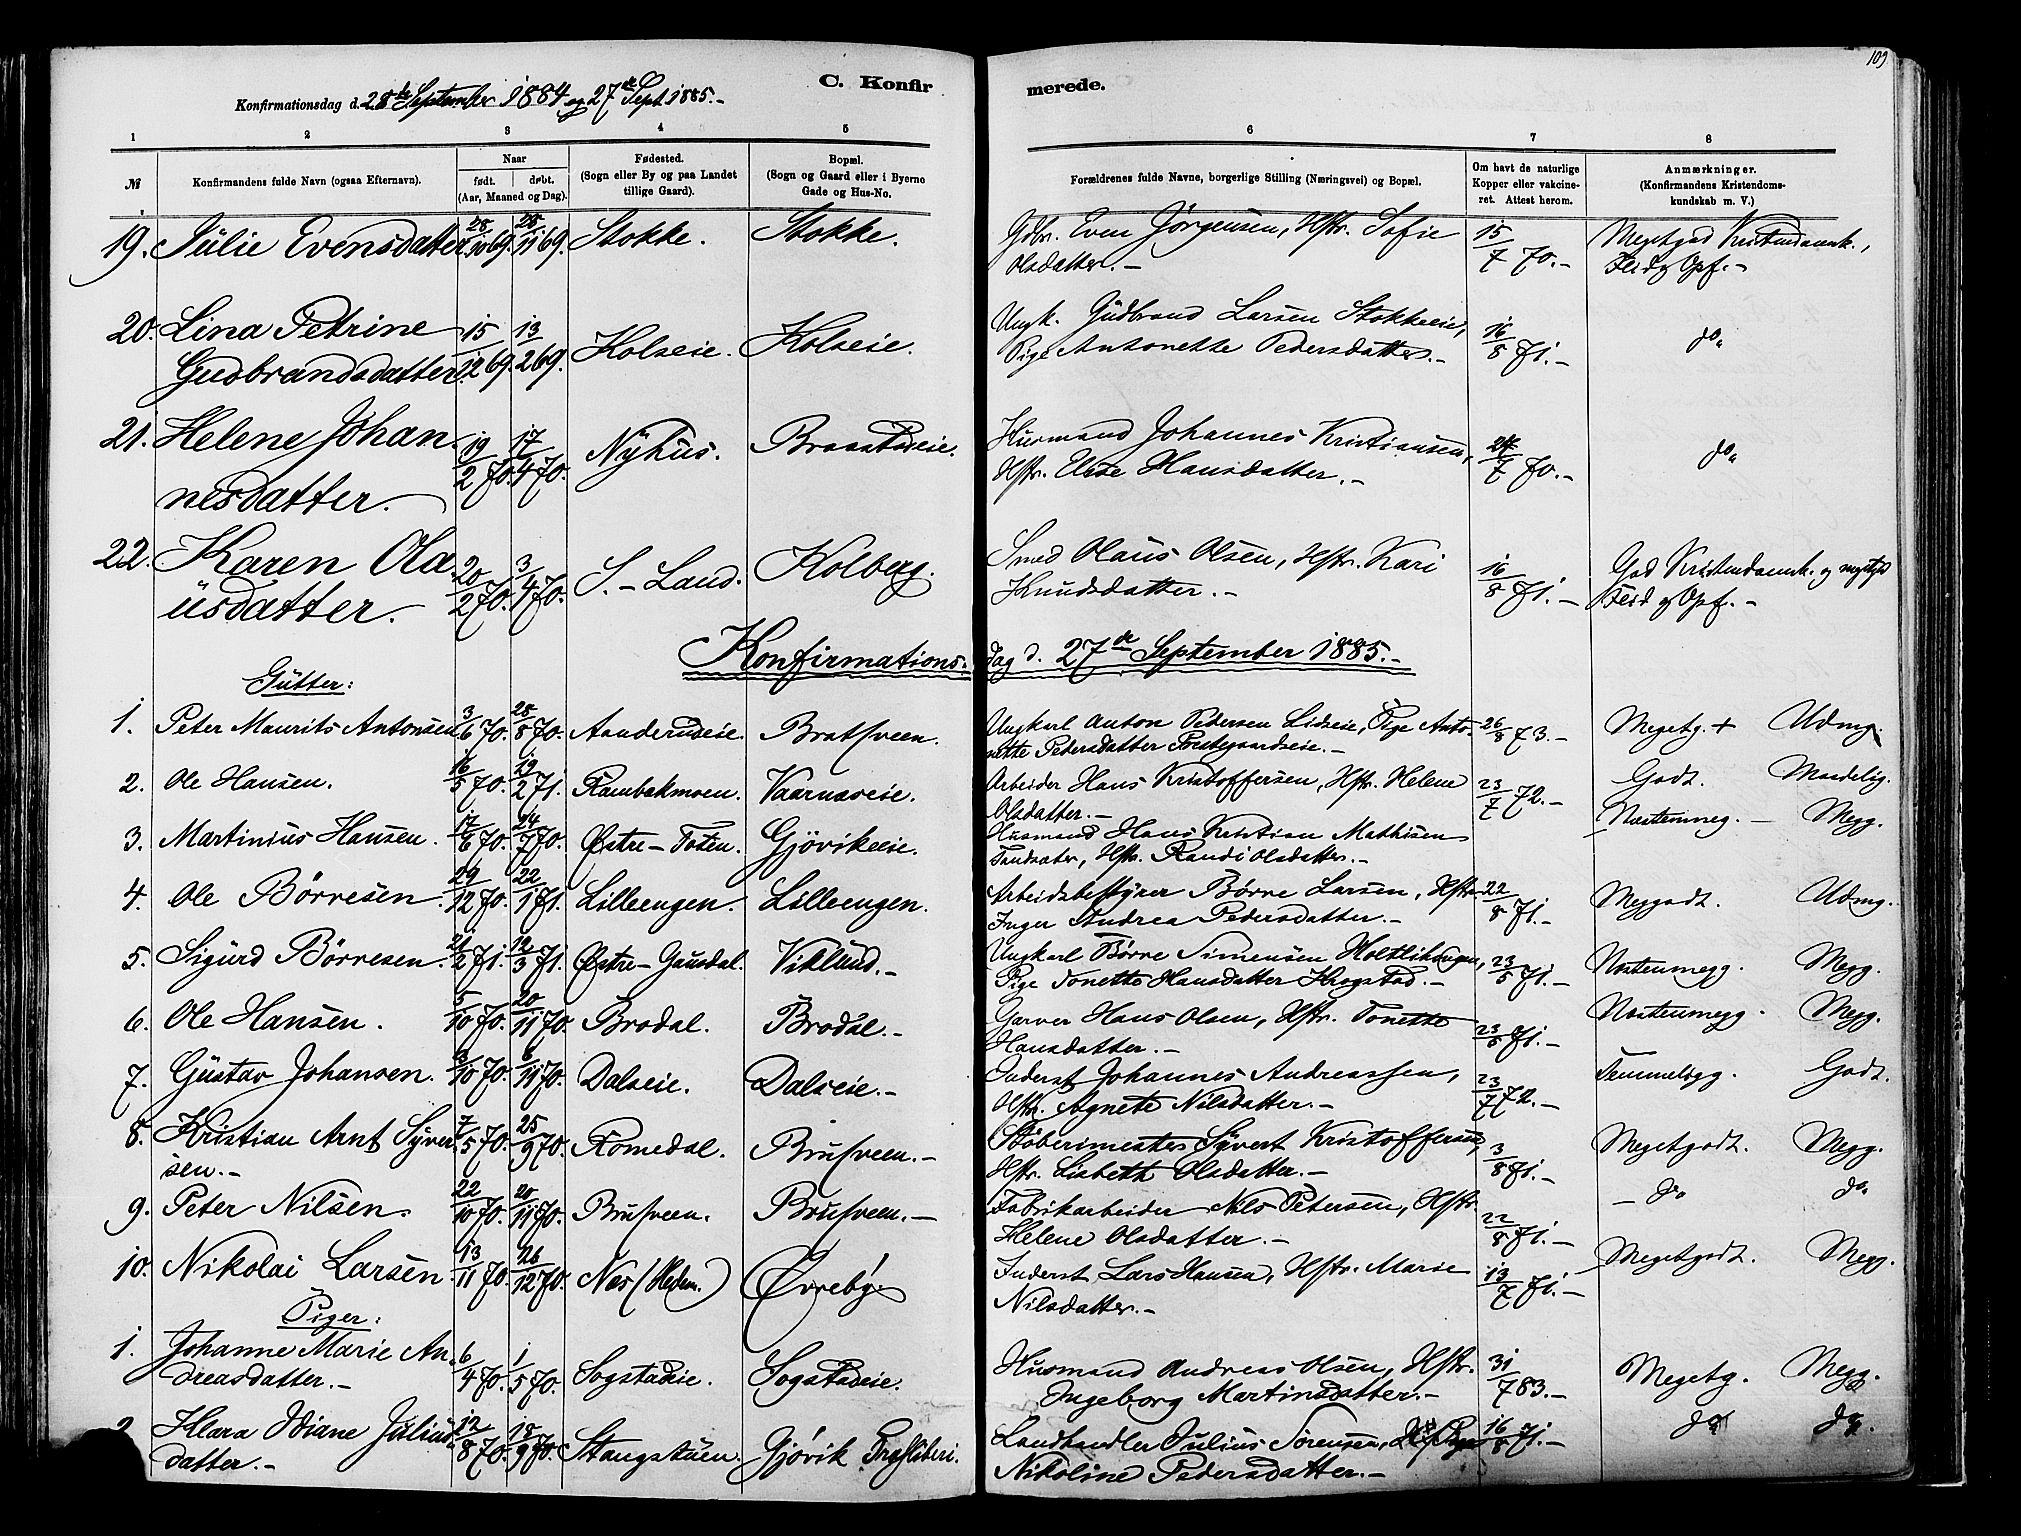 109
C. Konfirmerede.
Konfirmationsdag d. 28de September 1884 og 27de Sept 1885.-
1 2 3 4 5 6 7 8
№ Konfirmandens fulde Navn (ogsaa Efternavn). Naar født. døbt. (Aar, Maaned og Dag). Fødested. (Sogn eller By og paa Landet tillige Gaard). Bopæl. (Sogn og Gaard eller i Byerne Gade og Hus-No. Forældrenes fulde Navne, borgerlige Stilling (Næringsvei) og Bopæl. Om havt de naturlige Kopper eller vakcineret. Attest herom. Anmærkninger. (Konfirmandens Kristendomskundskab m. V.)
19. Julie Evensdatter 28/10 69. 28/11 69. Stokke. Stokke. Gdbr. Even Jørgensen, Hstr. Sofie 15/7 70.- Megetgod Kristendomsk.,
Olsdatter.- Flid og Opf.-
20. Lina Petrine 15/12 69. 13/2 69. Kolseie. Kolseie. Ungk. Gudbrand Larsen Stokkeeie, 16/8 71.- do.
Gudbrandsdatter. Pige Antonette Pedersdatter.-
21. Helene Johan 19/2 70. 17/4 70. Nyhus. Braastadeie. Husmand Johannes Kristiansen, 24/7 70.- do.
nesdatter. Hstr. Elise Hansdatter.-
22. Karen Ola 20/2 70. 3/4 70. S.-Land. Kolberg. Smed Olaus Olsen, Hstr. Kari 16/8 71.- God Kristendomsk. og megetgod
usdatter. Knudsdatter.- Flid og Opf.-
Konfirmationsdag d. 27de September 1885.-
Gutter:
1. Peter Maurits Antonsen 3/6 70. 28/8 70. Aanderudeie. Bratsveen. Ungkarl Anton Pedersen Lidseie, Pige Anto- 26/8 73.- Megetg. + Udmg.
nette Pedersdatter Prestegaardseie.-
2. Ole Hansen. 16/5 70. 19/2 71. Rambekmoen. Vaarnaseie. Arbeider Hans Kristoffersen, Hstr. Helene 23/7 72.- Godt. Maadelig.
Olsdatter.-
3. Martinius Hansen. 17/6 70. 24/7 70. Østre-Toten. Gjøvikeie. Husmand Hans Kristian Mathisen Næstenmeg.- Megg.
Hstr. Randi Olsdatter.-
4. Ole Børresen. 29/12 70. 22/1 71. Lilleengen. Lilleengen. Arbeidsbestyrer Børre Larsen, Hstr. 22/8 71.- Meggodt. Udmg.
Inger Andrea Pedersdatter.-
5. Sigurd Børresen. 21/2 71. 12/3 71. Østre-Gausdal. Viklund.- Ungkarl Børre Simensen Holtlihaugen, 23/5 71.- Næstenmegg. Megg.
Pige Tonette Hansdatter Haagstad.-
6. Ole Hansen. 5/10 70. 20/11 70. Brodal. Brodal.- Garver Hans Olsen, Hstr. Tonette 23/8 71.- Næstenmegg. Megg.
Hansdatter.-
7. Gustav Johansen. 3/10 70. 6/11 70. Dalseie. Dalseie.- Inderst Johannes Andreassen, 23/7 72.- Temmeligg. Godt.
Hstr. Agnete Nilsdatter.-
8. Kristian Arnt Syver 7/5 70. 25/9 70. Romedal. Brusveen.- Støberimester Syvert Kristoffersen, 3/8 71.- Megetgodt. Megg.
sen.- Hstr. Lisbeth Olsdatter.-
9. Peter Nilsen. 22/10 70. 20/11 70. Brusveen. Brusveen.- Fabrikarbeider Nils Petersen, Hstr. 22/8 71.- - do do.
Helene Olsdatter.-
10. Nikolai Larsen 13/11 70. 26/12 70. Nes (Hedm.) Øvreby. Inderst Lars Hansen, Hstr. Marie 13/7 71.- Megetgodt. Megg.
Nilsdatter.-
Piger:
1. Johanne Marie An- 6/4 70. 1/5 70. Sogstadeie. Sogstadeie. Husmand Andreas Olsen, Hstr. 31/7 83.- Megetg. Megg.
dreasdatter.- Ingeborg Martinsdatter.-
2. Klara Odiane Julius- 12/8 70. 18/9 70. Stangstuen. Gjøvik Træsliberi. Landhandler Julius Sørensen, 16/8 71.- do do.
datter.- Nikoline Pedersdatter.-